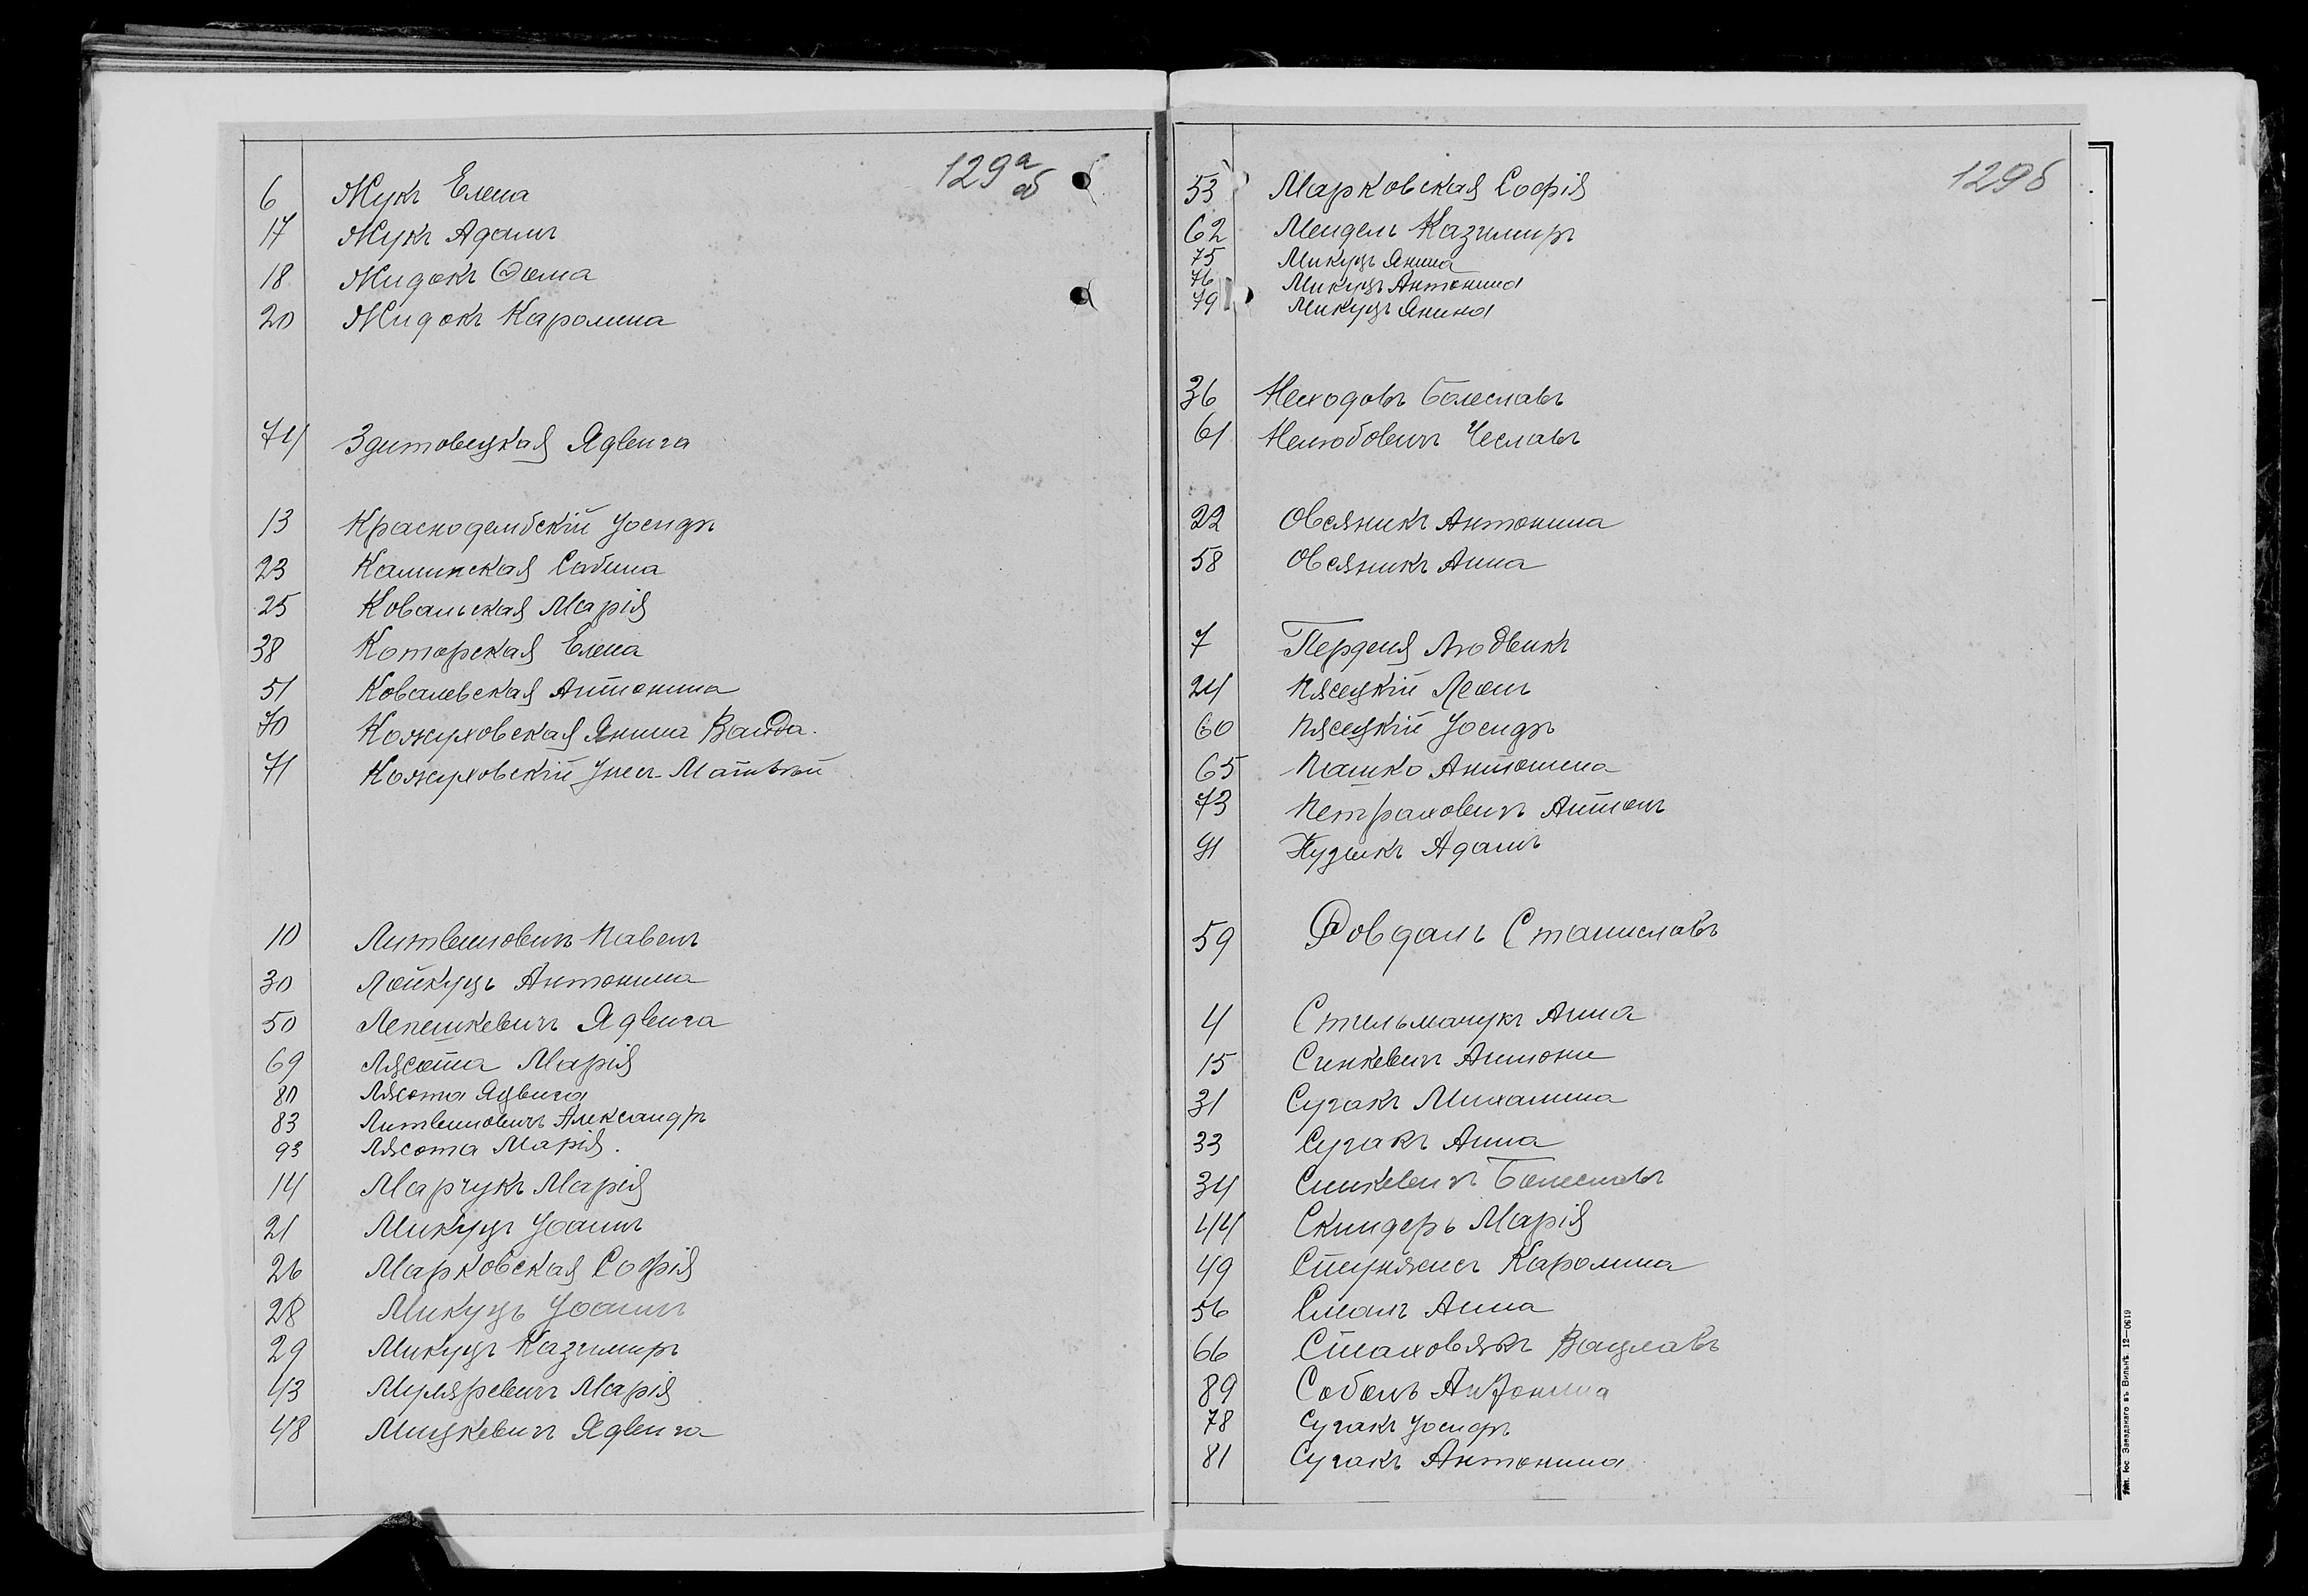 129а
об
6 Жукъ Елена
17 Жукъ Адамъ
18 Жидокъ Ѳома
20 Жидокъ Каролина
74 Здитовецкая Ядвига
13 Краснодембскій Іосифъ
23 Каминская Сабина
25 Ковальская Марія
38 Которская Елена
51 Ковалевская Антонина
70 Кожуховская Янина Ванда.
71 Кожуховскій Матвѣй
10 Литвиновичъ Павелъ
30 Лойкуць Антонина
50 Лепешкевичъ Ядвига
69 Лясота Марія
80 Лясота Ядвига
83 Литвиновичъ Александръ
93 Лясота Марія.
14 Марчукъ Марія
21 Микуцъ Іоаннъ
26 Марковская Софія
28 Микуць Іоаннъ
29 Микуцъ Казимиръ
43 Муляревичъ Марія
48 Мицкевичъ Ядвига
129б
53 Марковская Софія
62 Мендель Казимиръ
75 Микуць Янина
76 Микуць Антонина
79 Микуць Янина
36 Неходовъ Болеславъ
61 Нелюбовичъ Чеславъ
22 Овсяникъ Антонина
58 Овсяникъ Анна
7 Перденя Людвикъ
24 Пясецкій Леонъ
60 Пясецкій Іосифъ
65 Пашко Антонина
73 Петраховичъ Антонъ
91 Пузикъ Адамъ
59 Ровдаль Станиславъ
4 Стельмачукъ Анна
15 Синкевичъ Антони
31 Сугакъ Михалина
33 Сугакъ Анна
34 Синкевичъ Болеславъ
44 Скиндеръ Марія
49 Каролина
56 Анна
66 Стаховякъ Вацлавъ
89 Соболь Антонина
78 Сугакъ Іосифъ
81 Сугакъ Антонина
Тип. Іос. Завадзкаго въ Вильнѣ. 12—0619